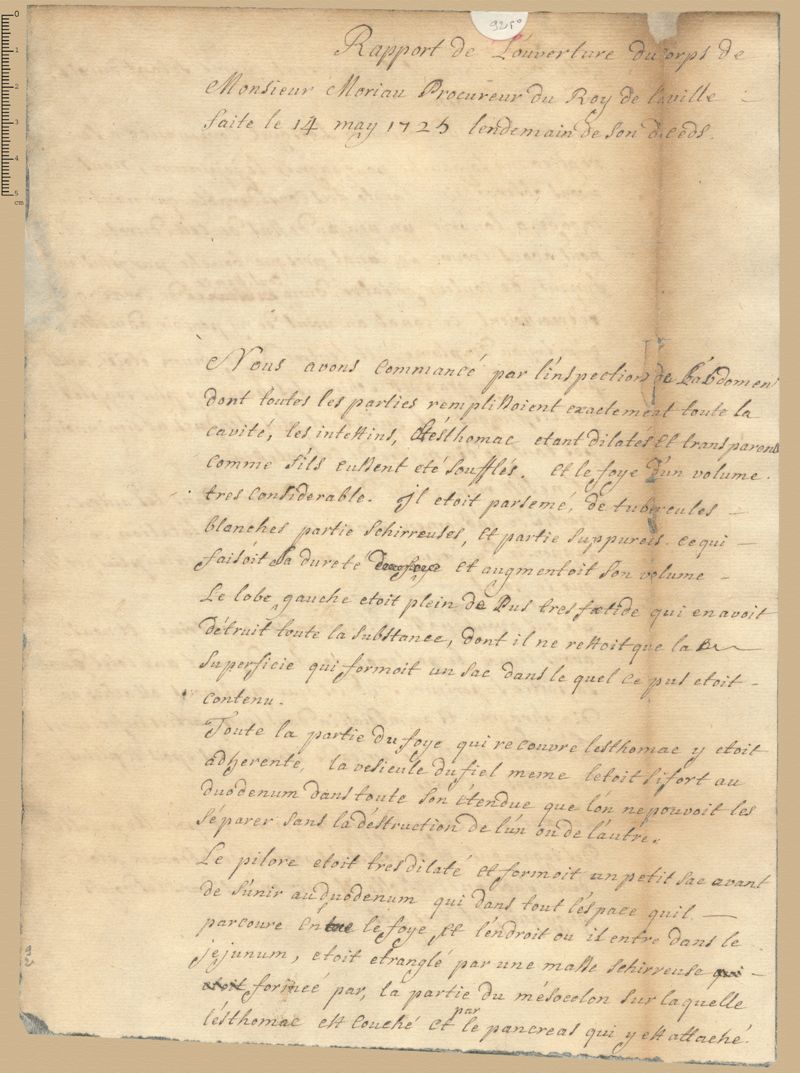 92 r°
Rapport de L'ouverture du corps de
Monsieur Moriau Procureur du Roy de la ville
faite le 14 may 1725 lendemain de son décéds.
Nous avons commancé par l'inspection de L'abdomen
dont toutes les parties remplissoient exactement toute la
cavité, les intestins, et l'ésthomac etant dilatés et transparens
comme s'ils eussent eté soufflés. et le foye d'un volume
tres considerable. il etoit parsemé, de tubercules
blanches partie schirreuses, et partie suppureés. ce qui
faisoit sa dureté du foye et augmentoit son volume
Le lobe gauche etoit plein de Pus tres fœtide qui en avoit
détruit toute la substance, dont il ne restoit que la
superficie qui formoit un sac dans le quel ce pus etoit
contenu.
Toute la partie du foye qui recouvre lesthomac y etoit
adherente, la vesicule du fiel meme letoit si fort au
duodenum dans toute son étendue que l'on ne pouvoit les
séparer sans la déstruction de l'un ou de l'autre.
Le pilore etoit tres dilaté et formoit un petit sac avant
de s'unir au duodenum qui dans tout léspace quil
parcoure entre le foye, et l'éndroit ou il entre dans le
jejunum, etoit etranglé par une masse schirreuse qui
etoit formeé par, la partie du mésocolon sur laquelle
lésthomac est couché et par le pancreas qui y est attaché.